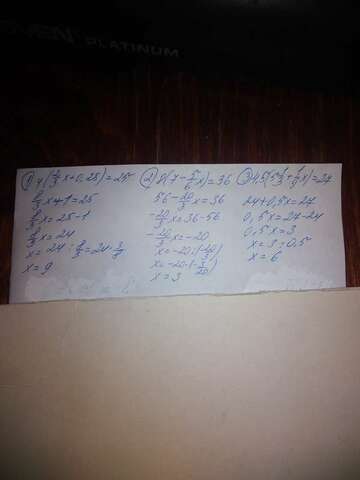 VEN PLATINUM
1) 4(2/3x+0,25)=25
8/3x+1=25
8/3x=25-1
8/3x=24
x=24:8/3=24·3/8
x=9
2) 8(7-5/6x)=36
56-20/3x=36
-20/3x=36-56
-20/3x=-20
x=-20:(-20/3)
x=-20·(-3/20)
x=3
3) 4,5(5 1/3+1/9x)=27
24+0,5x=27
0,5x=27-24
0,5x=3
x=3:0,5
x=6